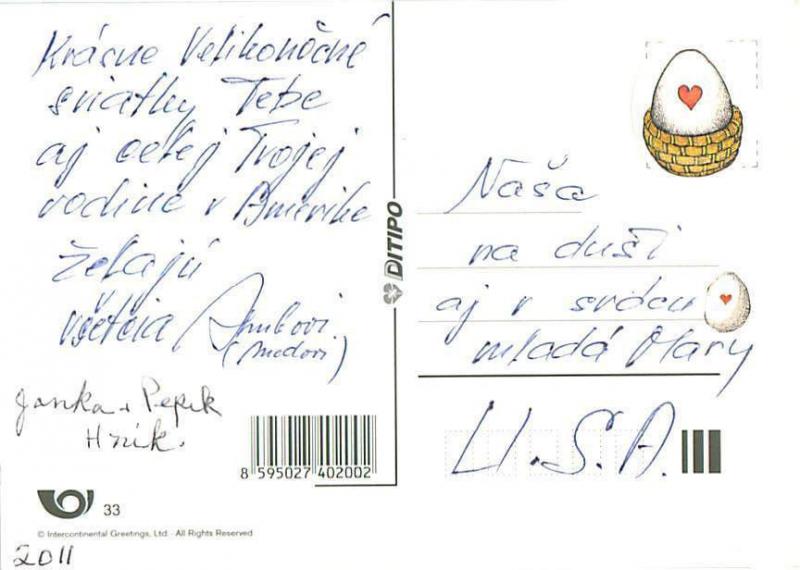 Krásne Velikonočné
sviatky Tebe
aj celej Tvojej
rodine v Amerike
želajú
všetcia
Janka + Pepík
Hník.
DITIPO
Naša
na duši
aj v srdcu
mladá Mary
U.S.A.
8 595027 402002
33
© Intercontinental Greetings, Ltd. · All Rights Reserved
2011